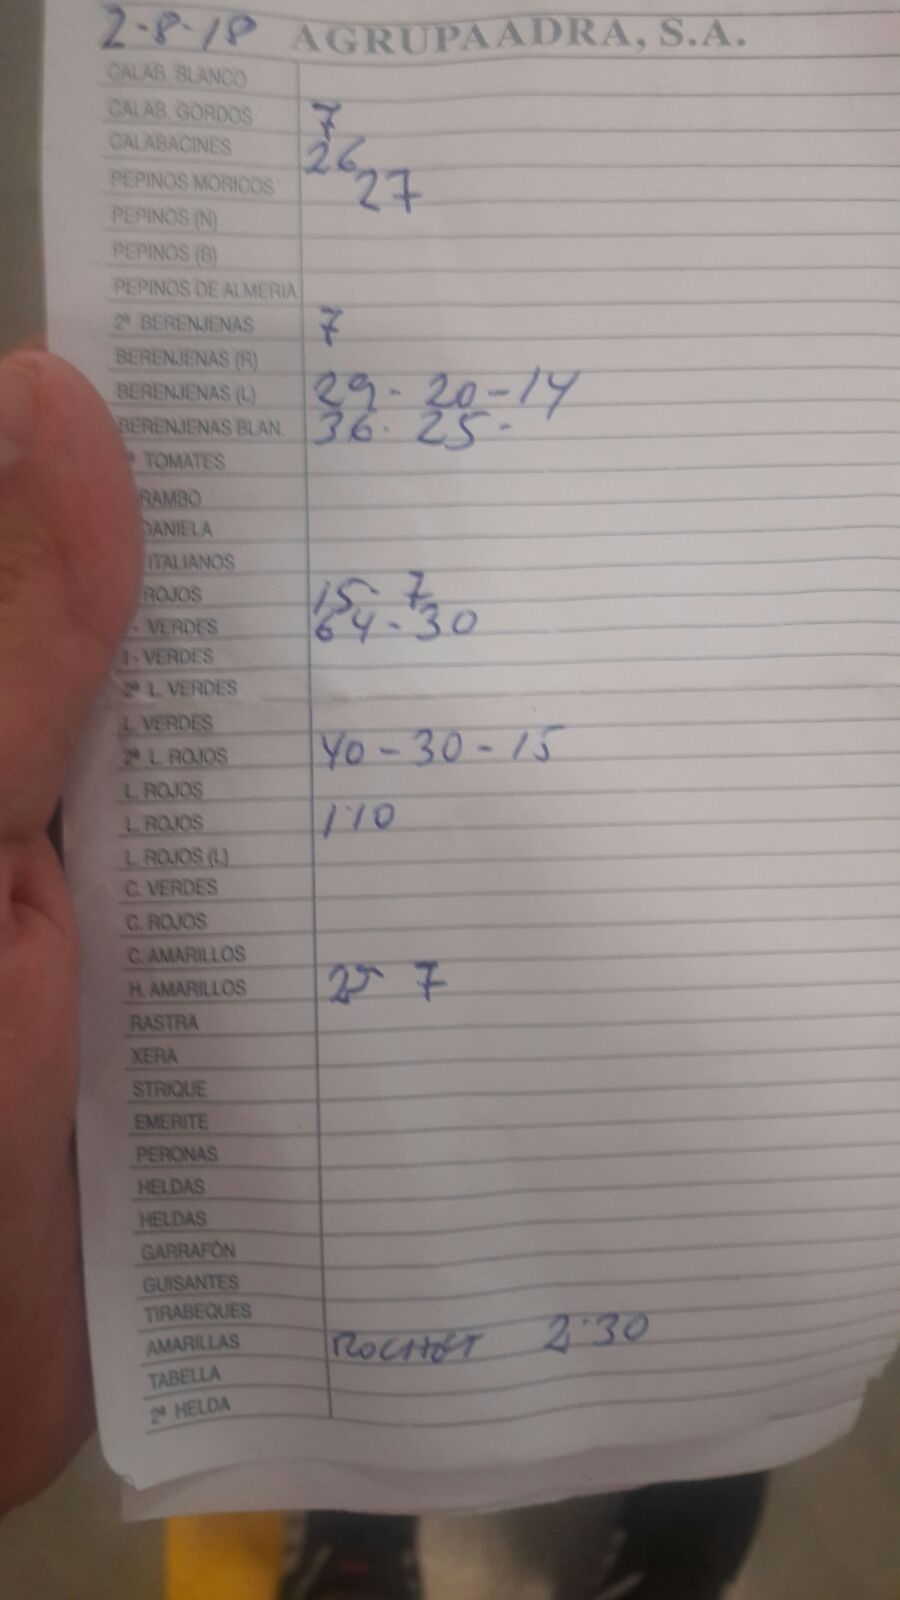 2-8-18 AGRUPAADRA, S.A.
CALAB. BLANCO
CALAB. GORDOS 7
CALABACINES 26
PEPINOS MORICOS 27
PEPINOS (N)
PEPINOS (B)
PEPINOS DE ALMERIA
2ª BERENJENAS 7
BERENJENAS (R)
BERENJENAS (L) 29- 20-14
BERENJENAS BLAN. 36- 25-
ª TOMATES
RAMBO
DANIELA
ITALIANOS
ROJOS 15- 7
- VERDES 64-30
1- VERDES
2ª L. VERDES
L. VERDES
2ª L. ROJOS 40-30-15
L. ROJOS
L. ROJOS 1'10
L. ROJOS (L)
C. VERDES
C. ROJOS
C. AMARILLOS
H. AMARILLOS 25 7
RASTRA
XERA
STRIQUE
EMERITE
PERONAS
HELDAS
HELDAS
GARRAFÓN
GUISANTES
TIRABEQUES
AMARILLAS 2'30
TABELLA
2ª HELDA